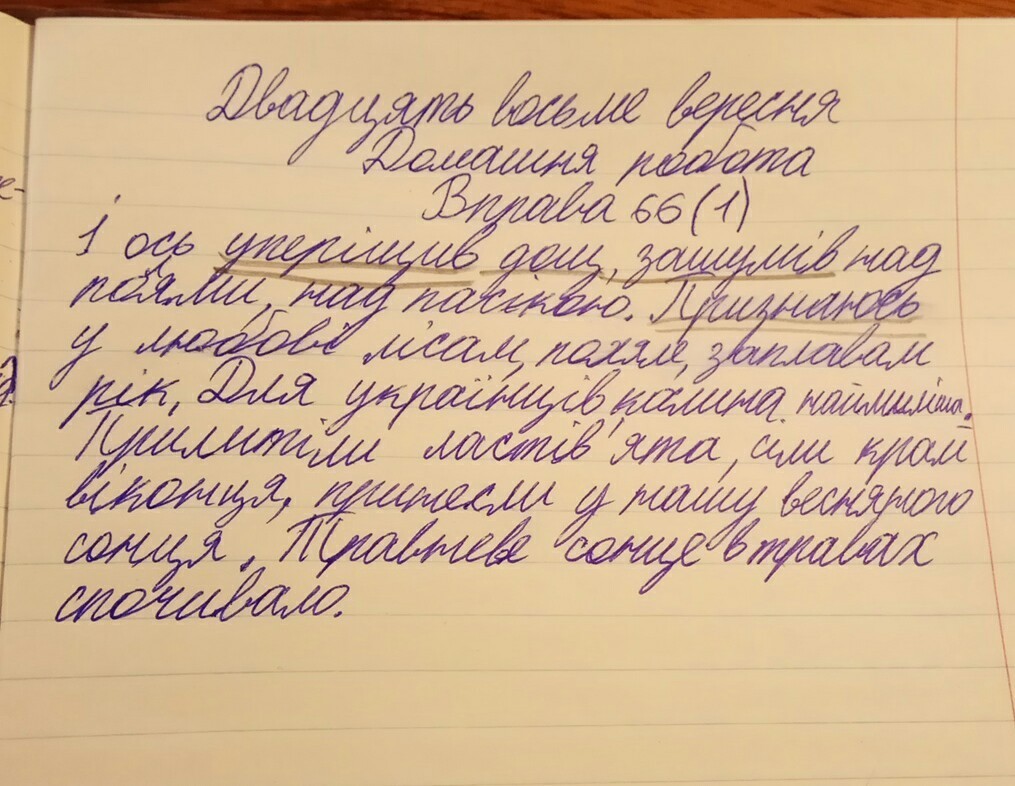 Двадцять восьме вересня
Домашня робота
Вправа 66 (1)
І ось уперіщив дощ, зашумів над
полями, над пасікою. Признаюсь
у любові лісам, полям, заплавам
рік, Для українців калина наймиліша.
Прилитіли ластів'ята, сіли край
віконця, принесли у нашу весняного
сонця. Травневе сонце в травах
спочивало.